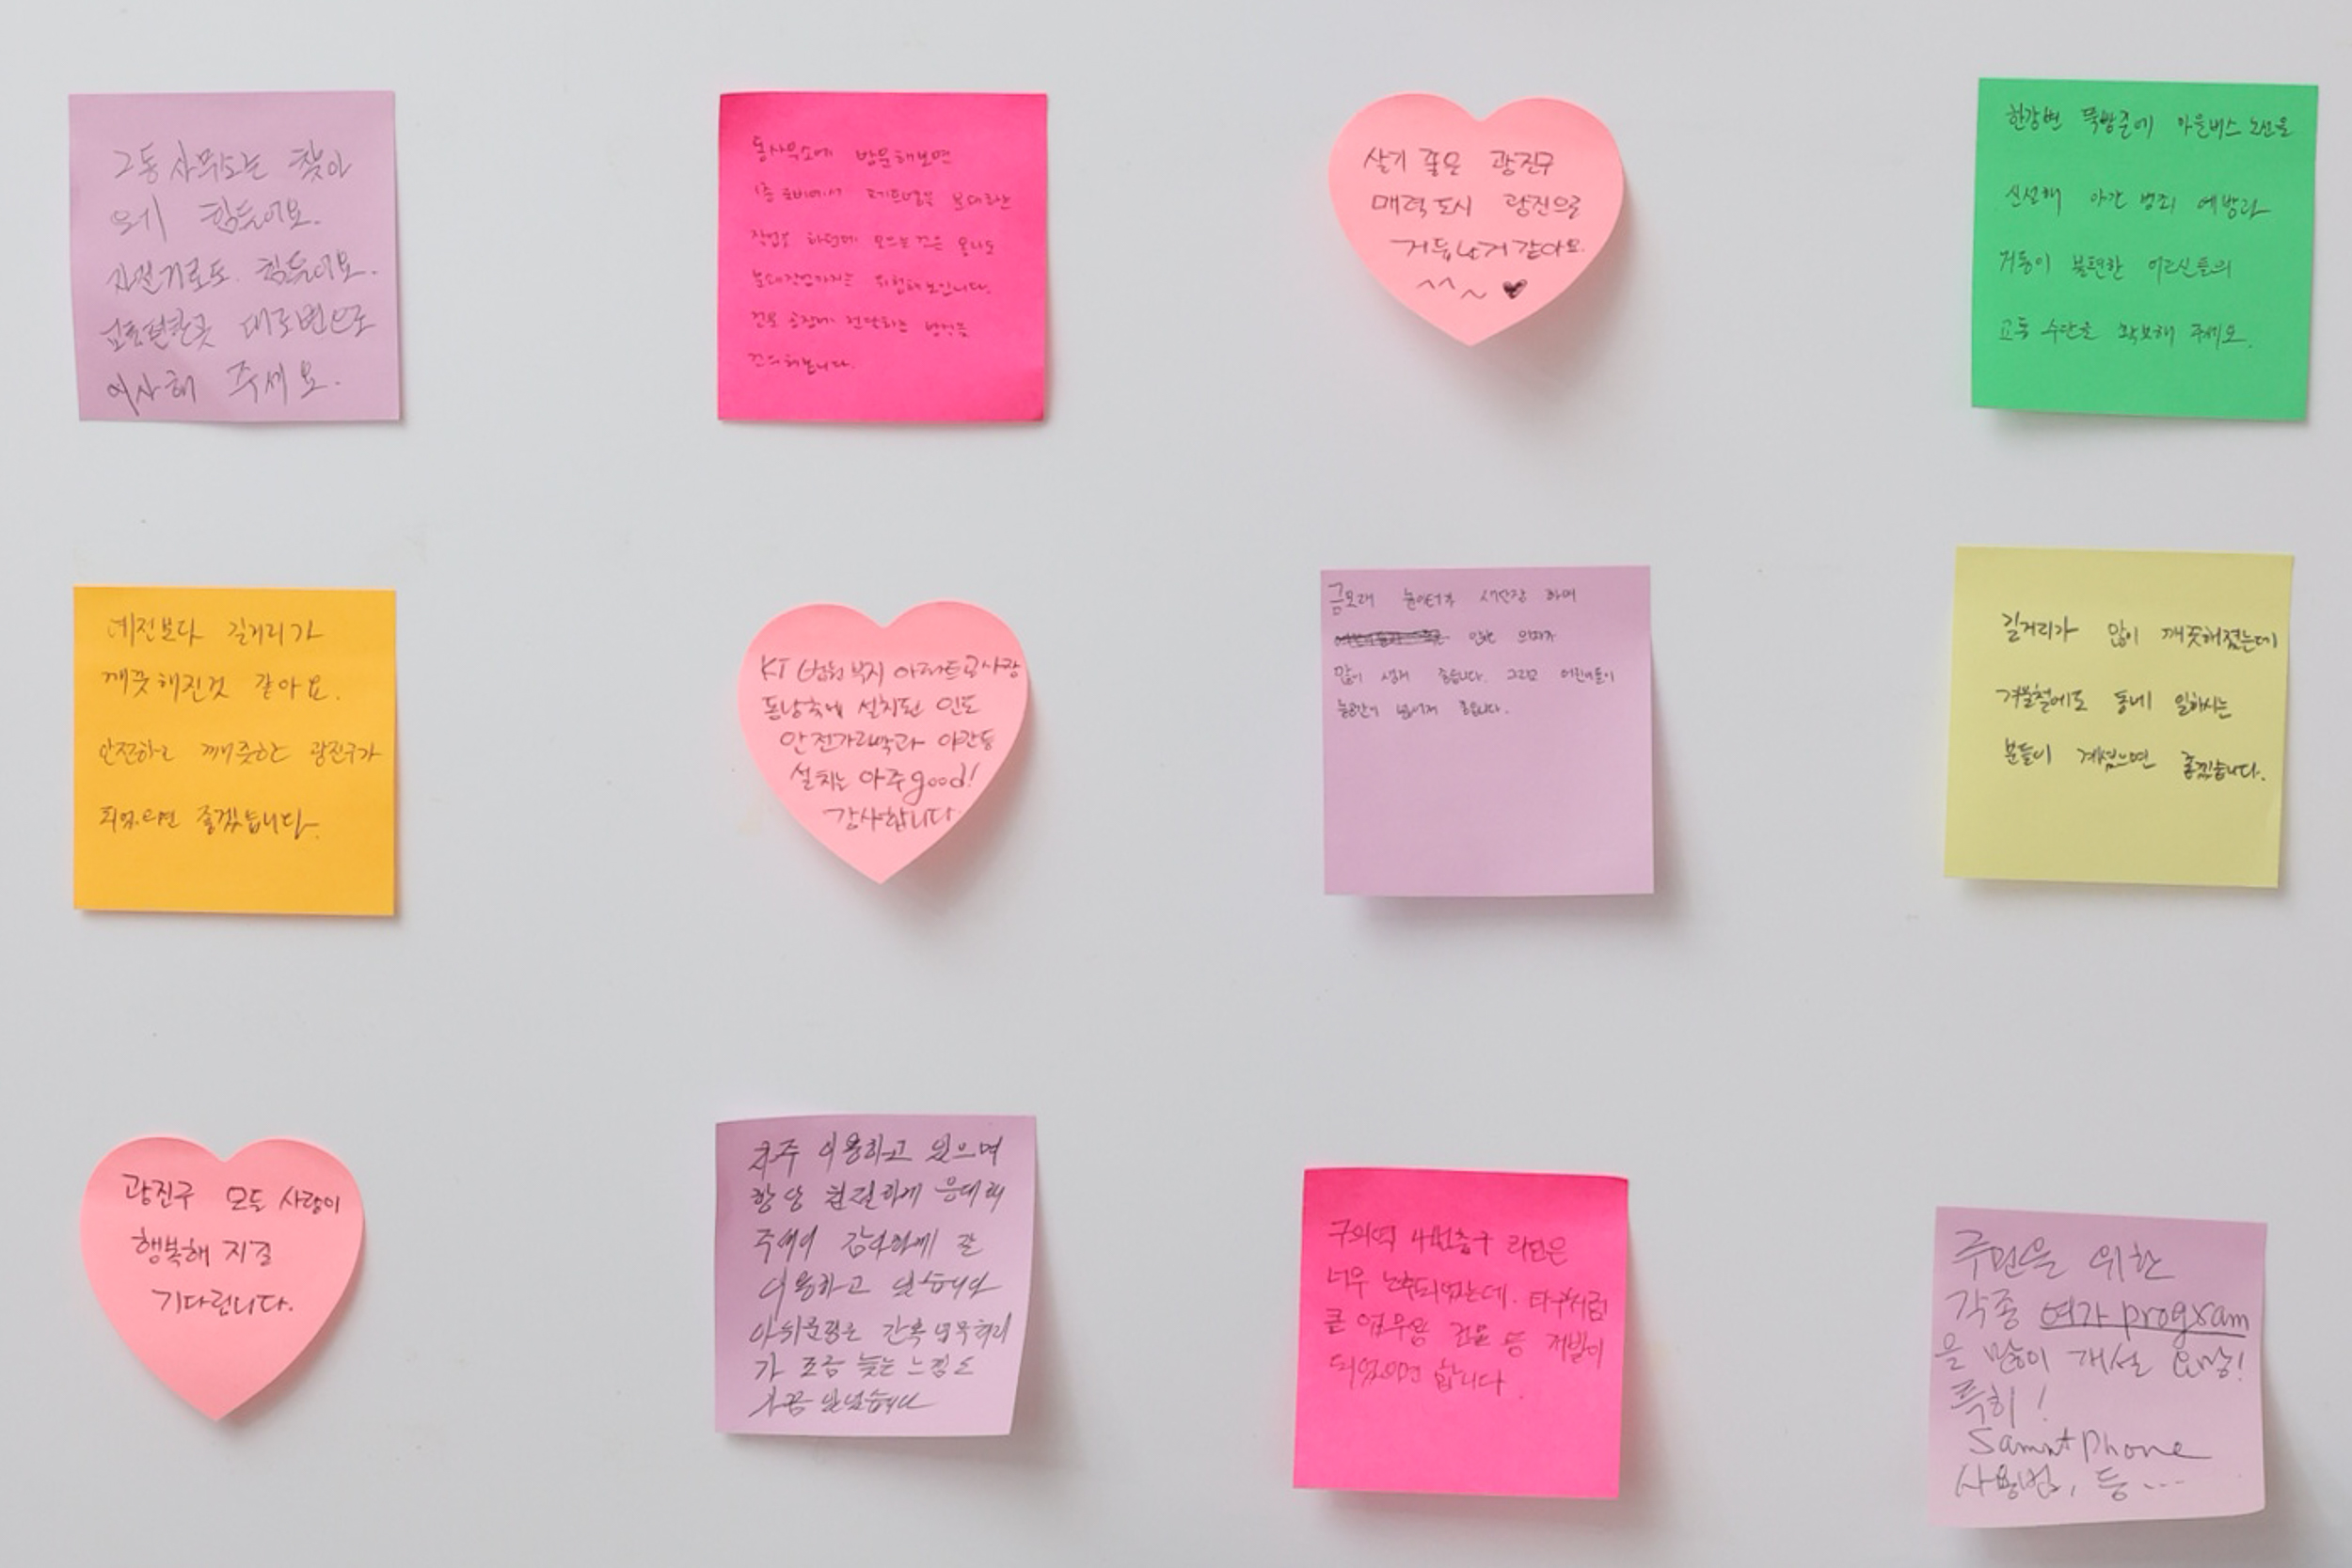 그 동사무소는 찾아
오기 힘들어요.
자전거로도 힘들어요.
대로변으로
이사해 주세요.
동사무소에 방문해보면
1층 로비에서 페트병을 분리하는
작업을 하던데 모으는 것은 몰라도
위험해 보입니다.
전문 공장에 전달하는 방식을
건의해봅니다.
살기 좋은 광진구
매력도시 광진으로
거듭난거 같아요.
^^~ ♥
한강변 뚝방준에 마을버스 노선을
신설해 야간 범죄 예방과
거동이 불편한 어르신들의
교통 수단을 확보해 주세요.
예전보다 길거리가
깨끗해진것 같아요.
안전하고 깨끗한 광진구가
되었으면 좋겠습니다.
KT 법원부지 아파트공사장
동남측에 설치된 인도
안전가림막과 야간등
설치는 아주 good!
감사합니다.
금모래 놀이터가 새단장 하여
많이 생겨 좋습니다. 그리고 어린이들이
놀공간이 넓어져 좋습니다.
길거리가 많이 깨끗해졌는데
겨울철에도 동네 일하시는
분들이 계셨으면 좋겠습니다.
광진구 모든 사람이
행복해 지길
기다립니다.
자주 이용하고 있으며
항상 친절하게 응대해
주셔서 감사하게 잘
이용하고 있습니다
아쉬운점은 간혹 업무처리
가 조금 늦는 느낌도
가끔 있었습니다
구의역 4번출구 라인은
너무 낙후되었는데. 타구처럼
큰 업무용 건물 등 개발이
되었으면 합니다.
주민을 위한
각종 여가 program
을 많이 개설 요망!
특히!
Samrt phone
사용법, 등 ....